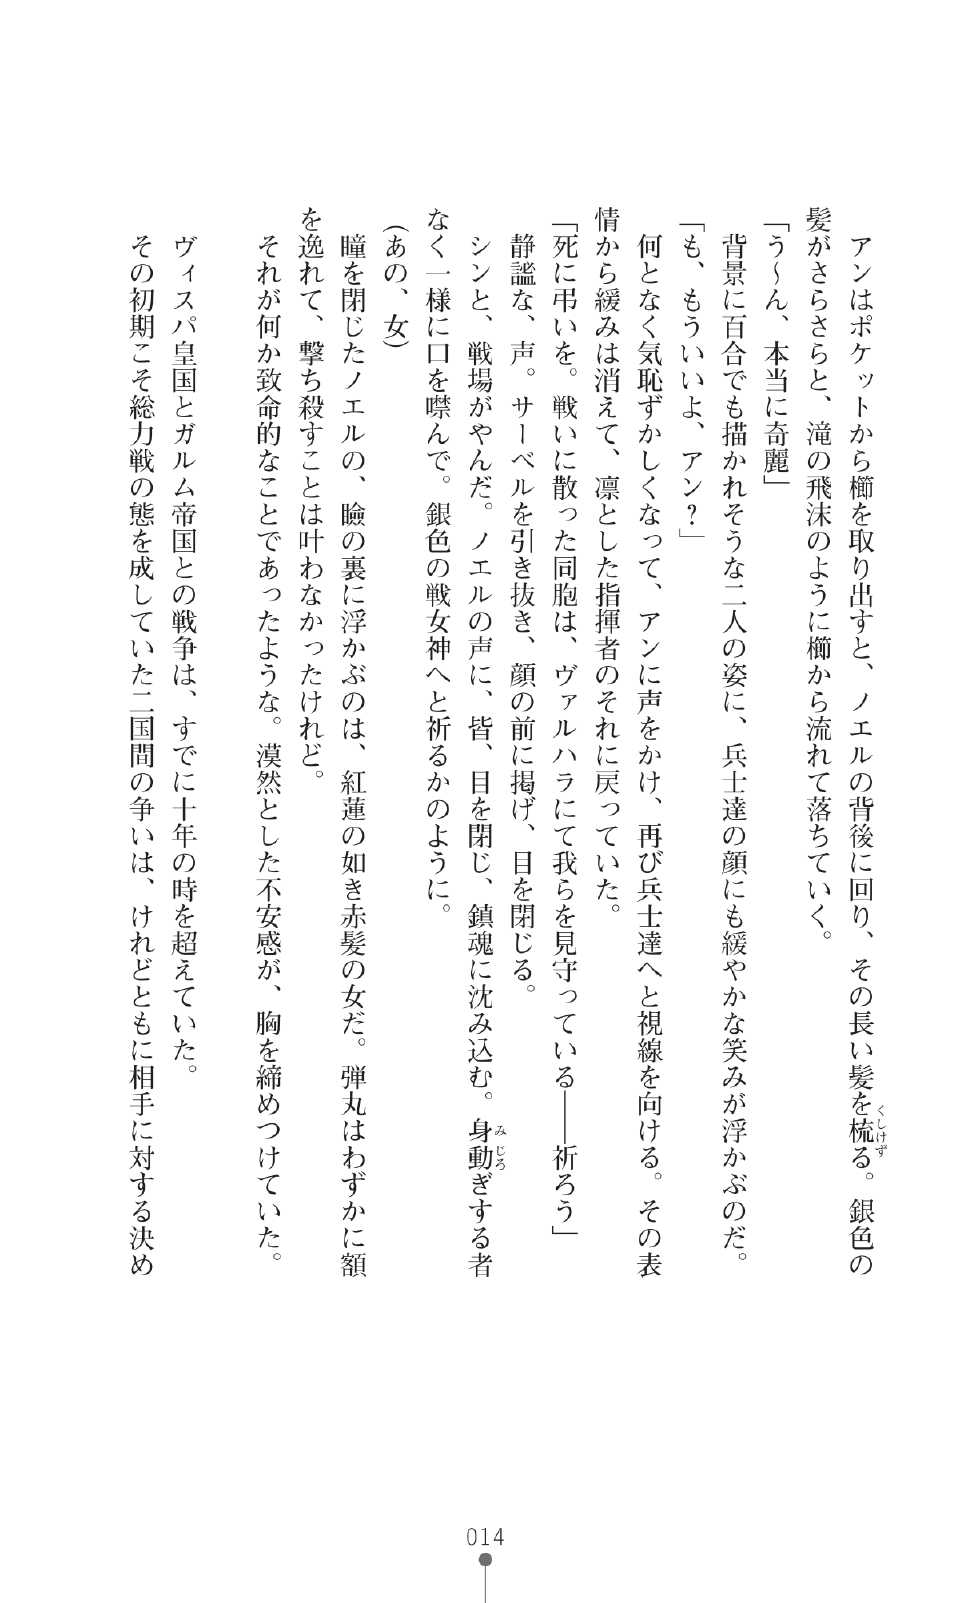 アンはポケットから櫛を取り出すと、ノエルの背後に回り、その長い髪を梳る。銀色の
くしけず
髪がさらさらと、滝の飛沫のように櫛から流れて落ちていく。
「う〜ん、本当に奇麗」
背景に百合でも描かれそうな二人の姿に、兵士達の顔にも緩やかな笑みが浮かぶのだ。
「も、もういいよ、アン？」
何となく気恥ずかしくなって、アンに声をかけ、再び兵士達へと視線を向ける。その表
情から緩みは消えて、凛とした指揮者のそれに戻っていた。
「死に弔いを。戦いに散った同胞は、ヴァルハラにて我らを見守っている――祈ろう」
静謐な、声。サーベルを引き抜き、顔の前に掲げ、目を閉じる。
シンと、戦場がやんだ。ノエルの声に、皆、目を閉じ、鎮魂に沈み込む。身動ぎする者
みじろ
なく一様に口を噤んで。銀色の戦女神へと祈るかのように。
（あの、女）
瞳を閉じたノエルの、瞼の裏に浮かぶのは、紅蓮の如き赤髪の女だ。弾丸はわずかに額
を逸れて、撃ち殺すことは叶わなかったけれど。
それが何か致命的なことであったような。漠然とした不安感が、胸を締めつけていた。
ヴィスパ皇国とガルム帝国との戦争は、すでに十年の時を超えていた。
その初期こそ総力戦の態を成していた二国間の争いは、けれどともに相手に対する決め
014